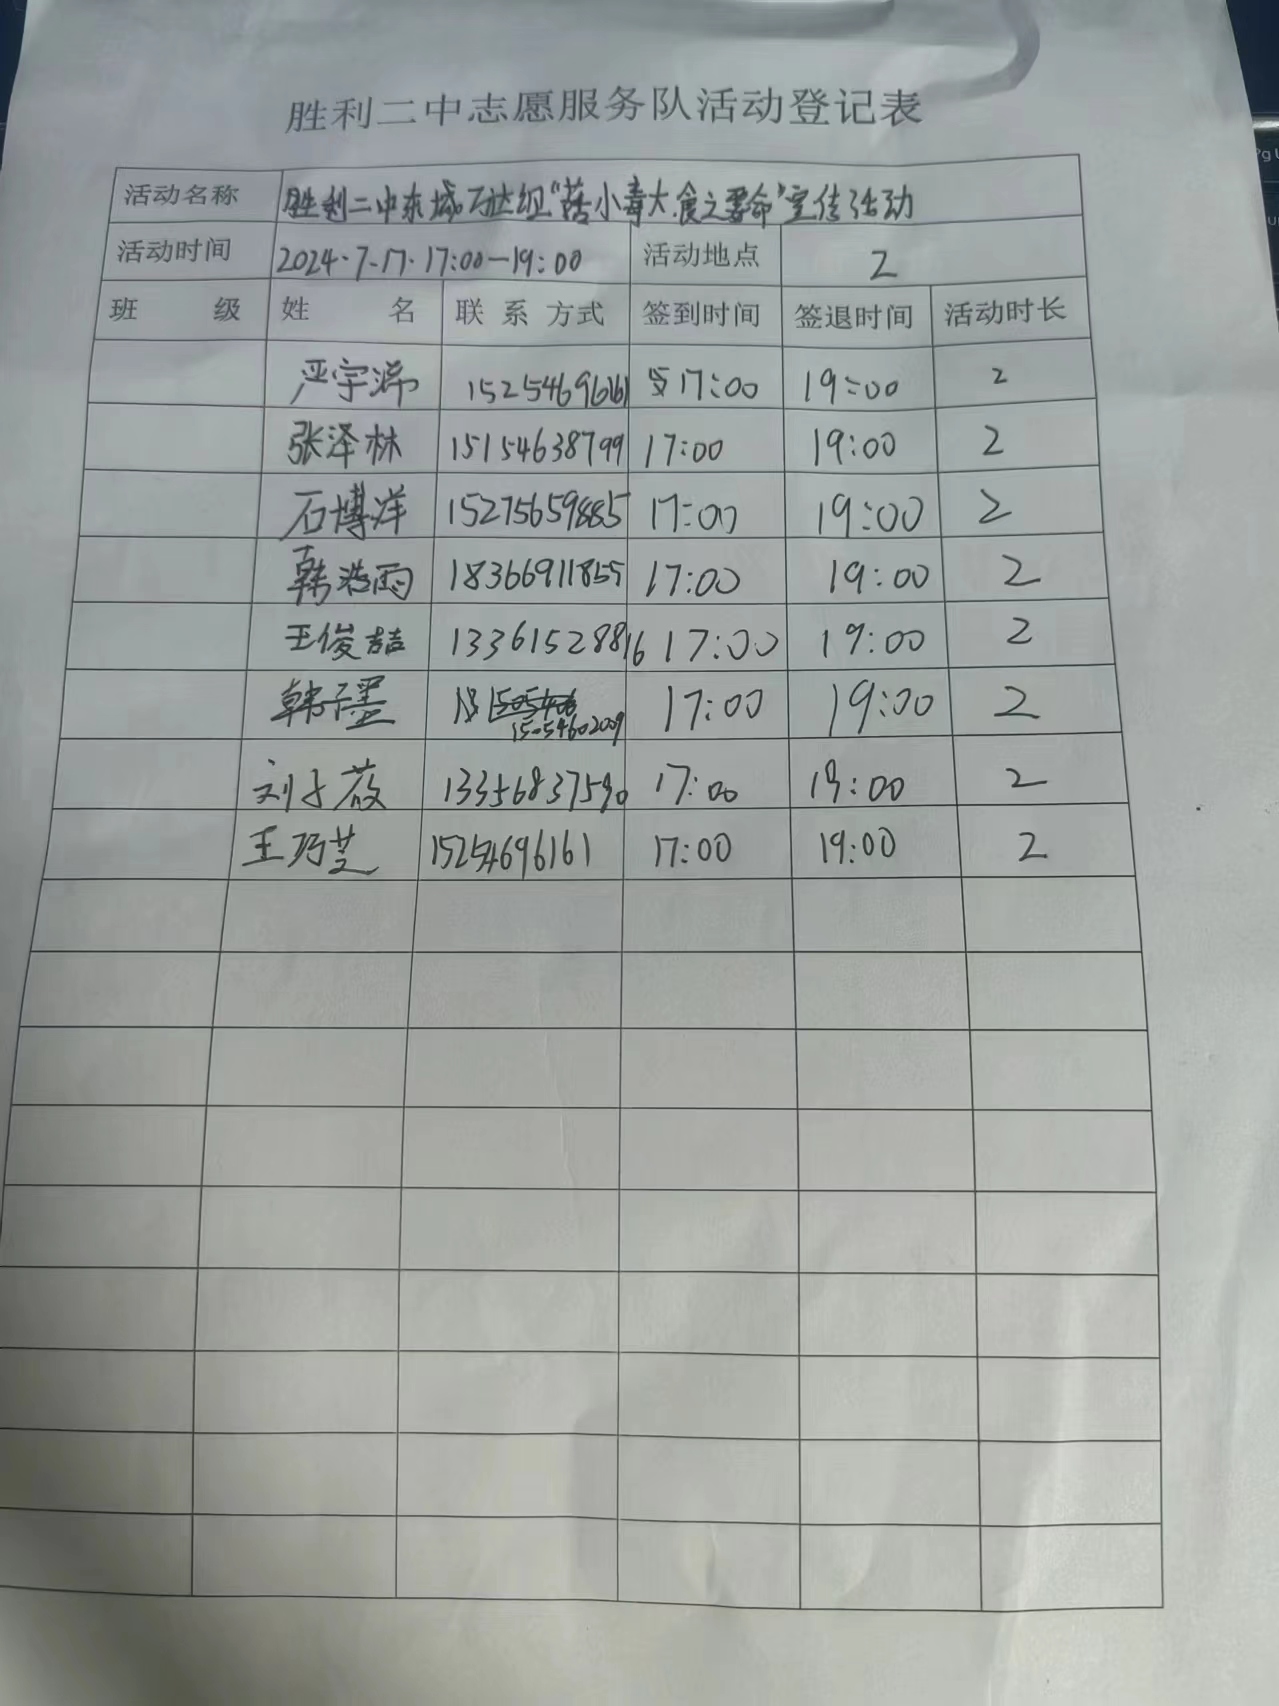 胜利二中志愿服务队活动登记表
活动名称 胜利二中东城万达组“菇小毒大,食之要命”宣传活动
活动时间 2024.7.17. 17:00—19:00 活动地点 2
班 级 姓 名 联 系 方式 签到时间 签退时间 活动时长
严宇涕 15254696161 17:00 19:00 2
张泽林 15154638799 17:00 19:00 2
石博洋 15275659885 17:00 19:00 2
韩浩雨 18366911855 17:00 19:00 2
王俊喆 13361528816 17:00 19:00 2
韩子墨 17:00 19:00 2
15054602009
刘子蔹 13356837590 17:00 19:00 2
王巧芝 15254696161 17:00 19:00 2